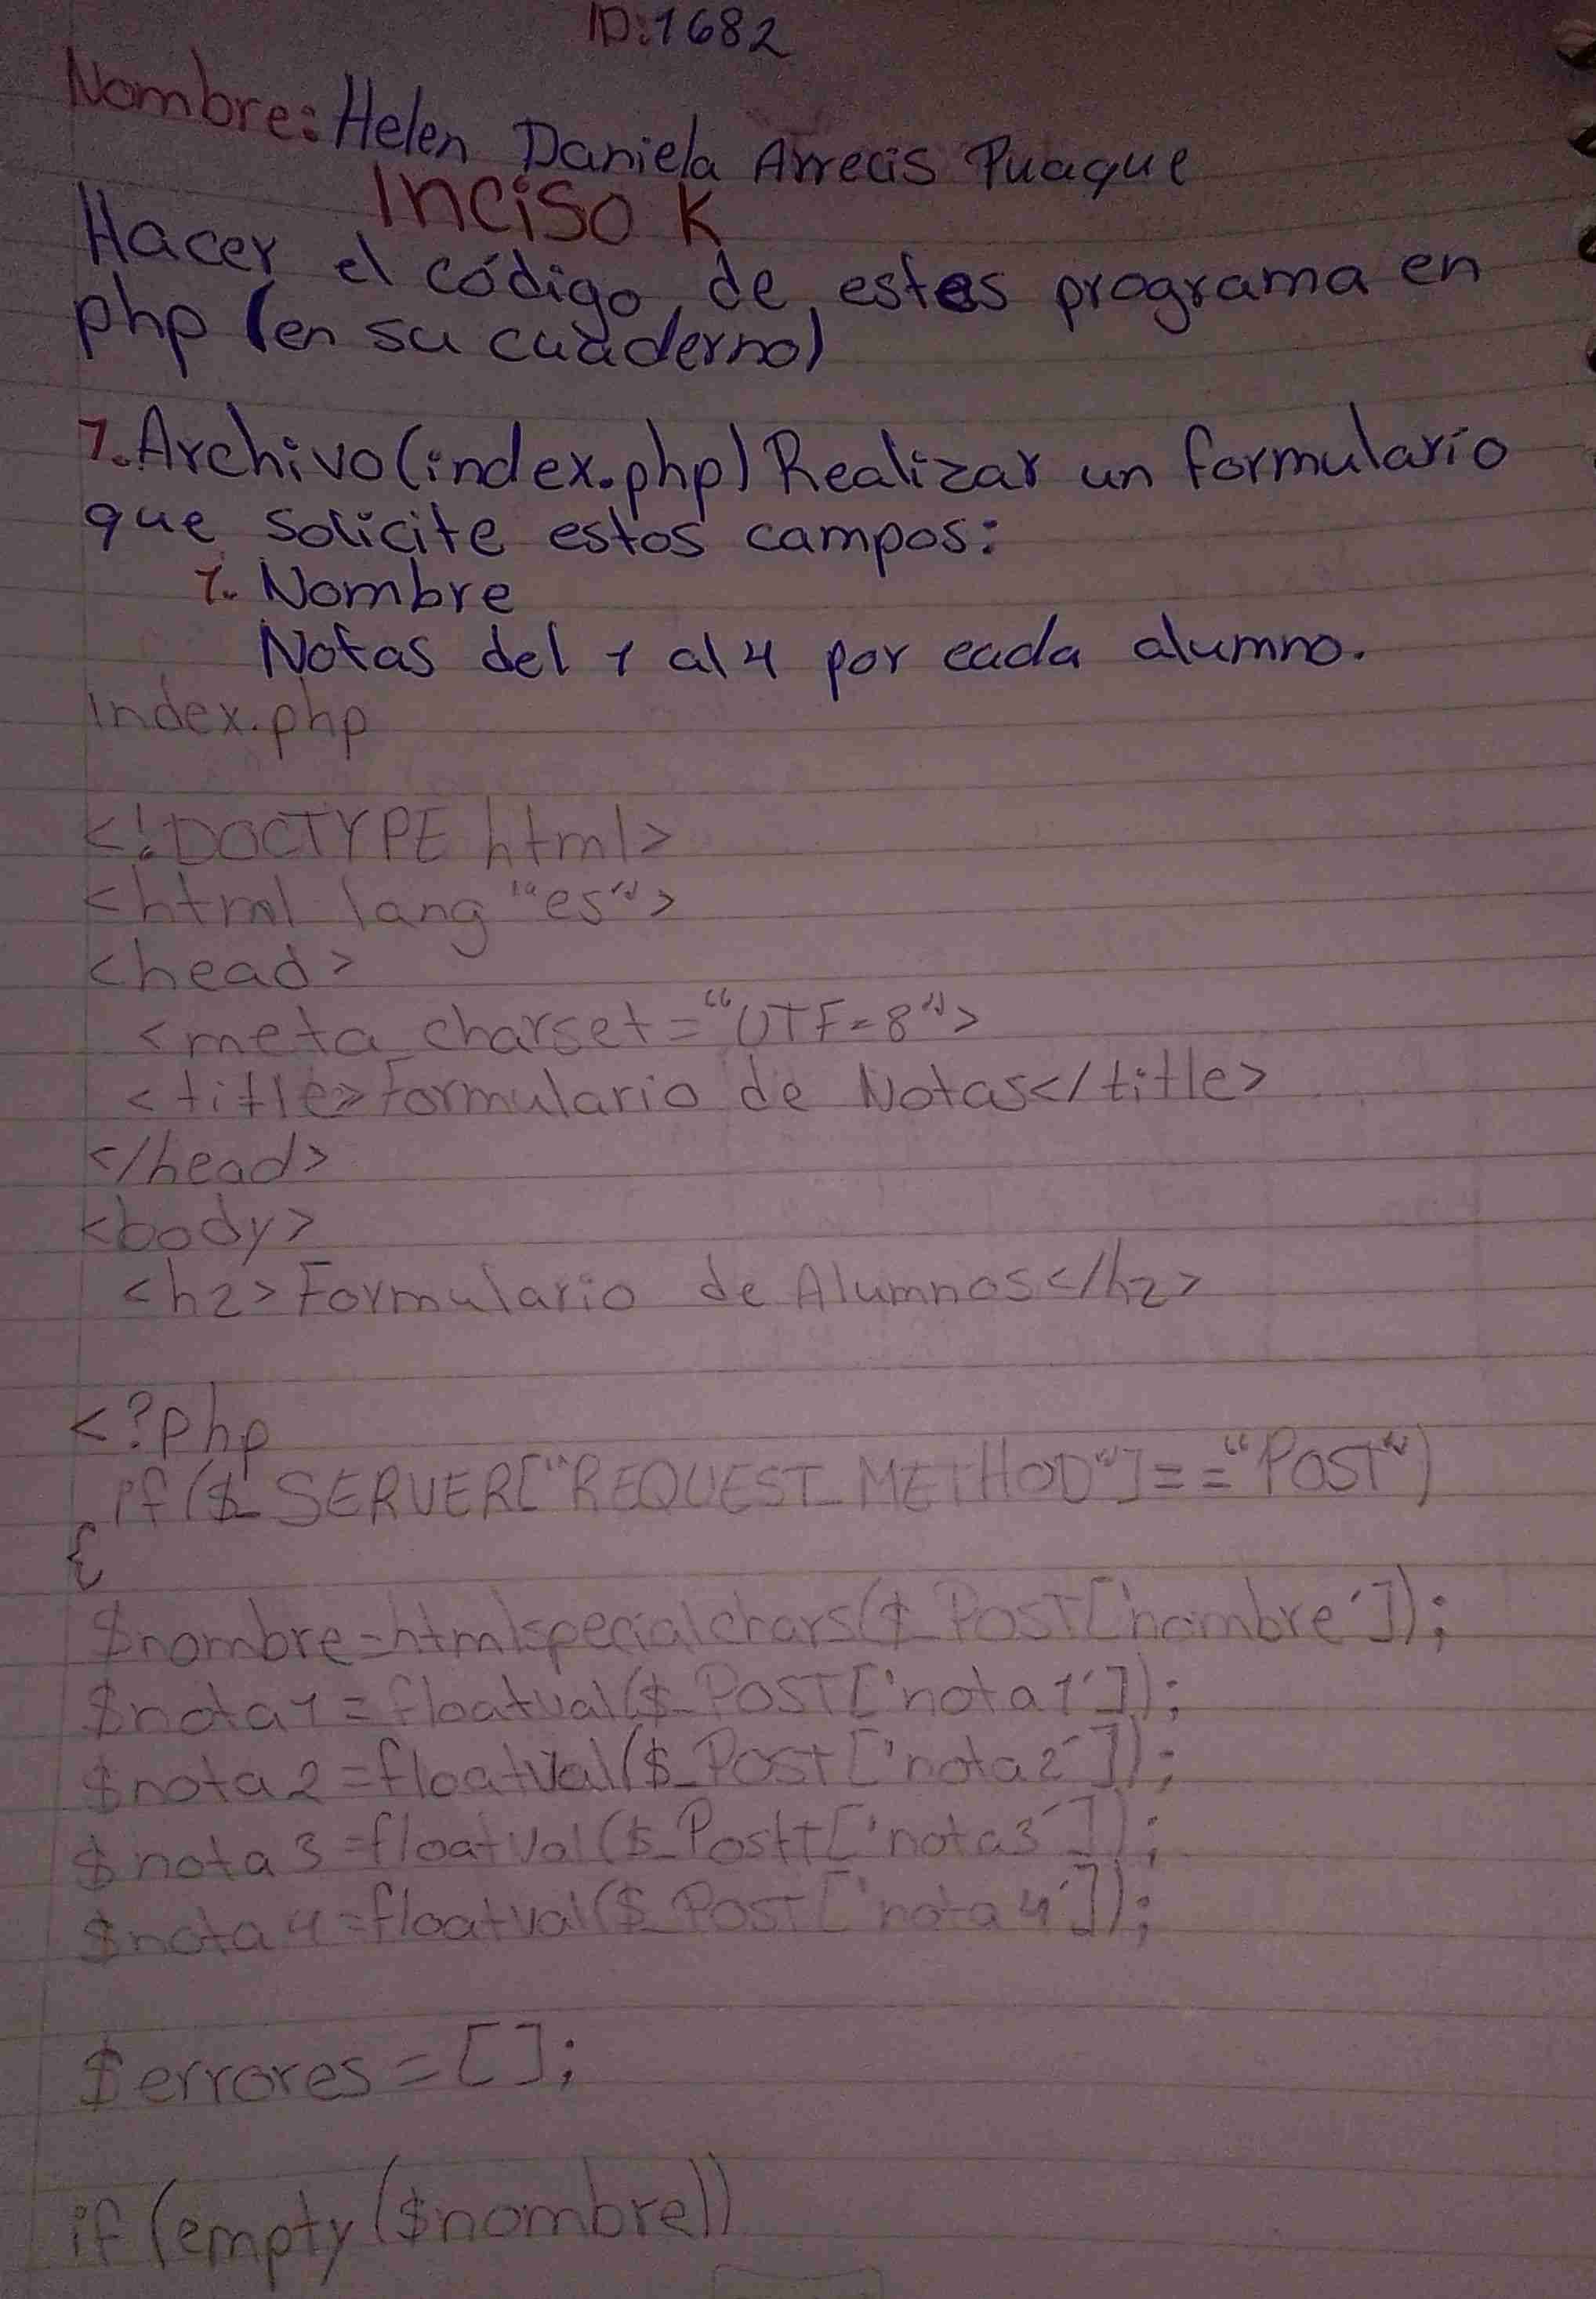 ID:1682
Nombre: Helen Daniela Arrecis Puaque
Inciso K
Hacer el código de estes programa en
php (en su cuaderno)
1. Archivo (index.php) Realizar un formulario
que solicite estos campos:
1. Nombre
Notas del 1 al 4 por cada alumno.
Index.php
<!DOCTYPE html>
<html lang "es">
<head>
<meta charset="UTF=8">
<title>Formulario de Notas</title>
</head>
<body>
<h2>Formulario de Alumnos</h2>
<?php
if($_SERVER["REQUEST_METHOD"]=="POST")
{
$nombre=htmlspecialchars($_POST['nombre']);
$nota1=floatval($_POST['nota1']);
$nota2=floatval($_POST['nota2']);
$nota3=floatval($_PostT['nota3']);
$nota4=floatval($_POST['nota4']);
$errores=[];
if (empty($nombre))